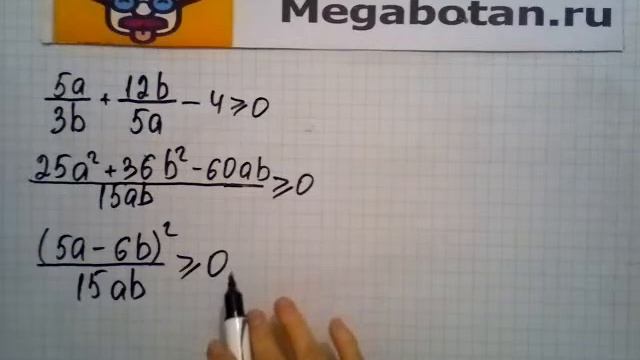 Megabotan.ru
5a/3b + 12b/5a - 4 ≥ 0
25a² + 36b² - 60ab / 15ab ≥ 0
(5a - 6b)² / 15ab ≥ 0